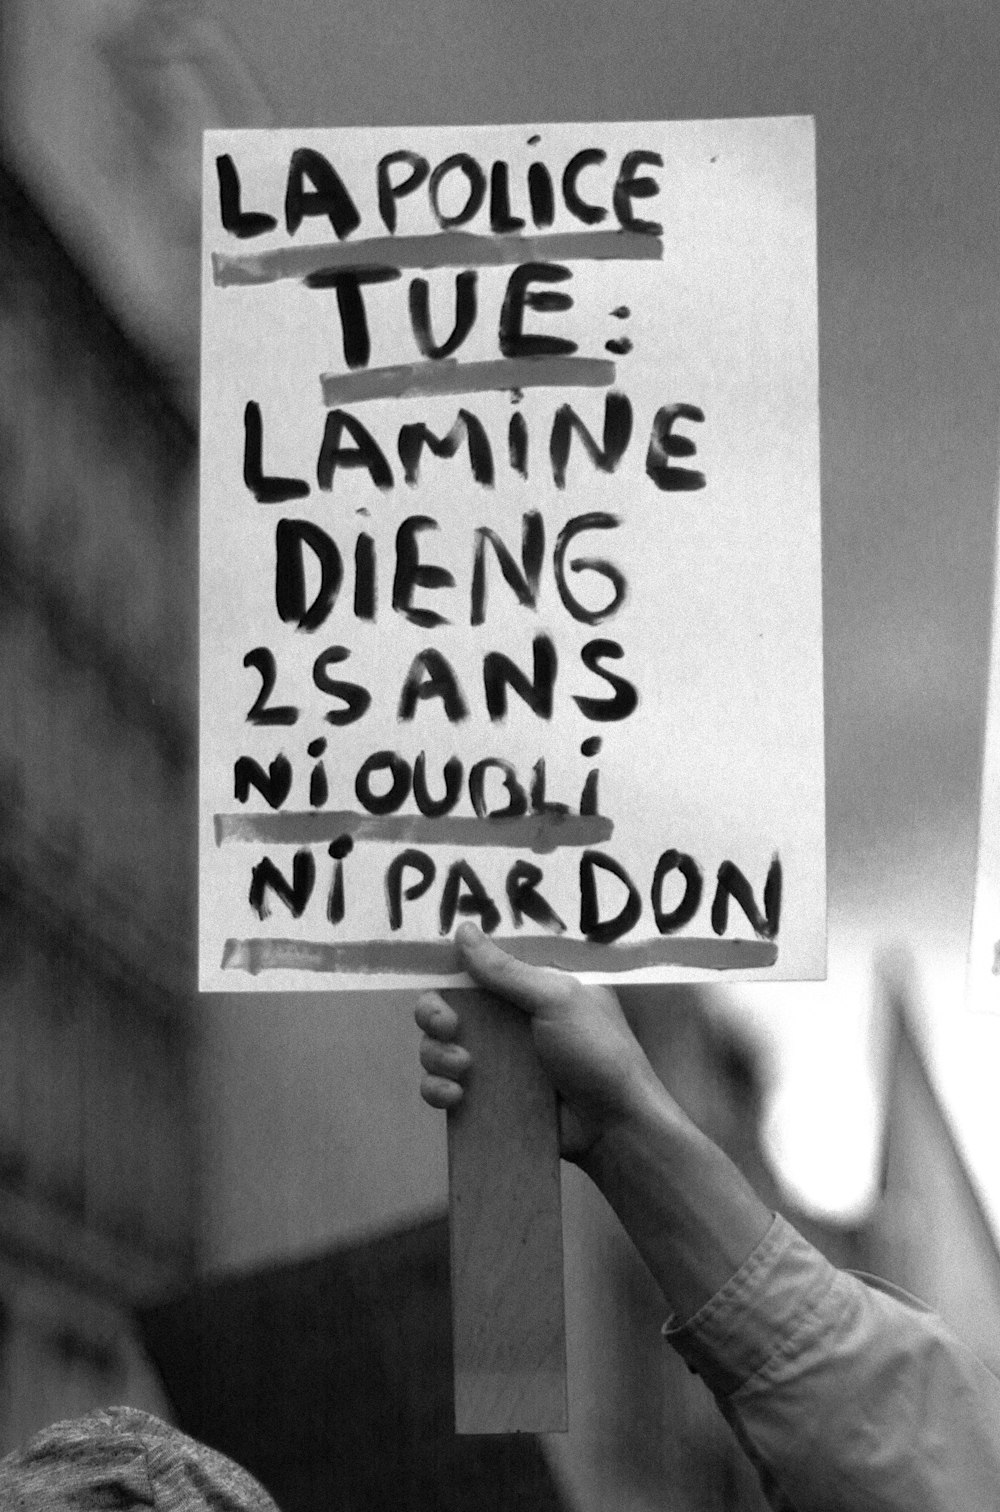 LA POLICE
TUE :
LAMINE
DIENG
25 ANS
NI OUBLI
NI PARDON